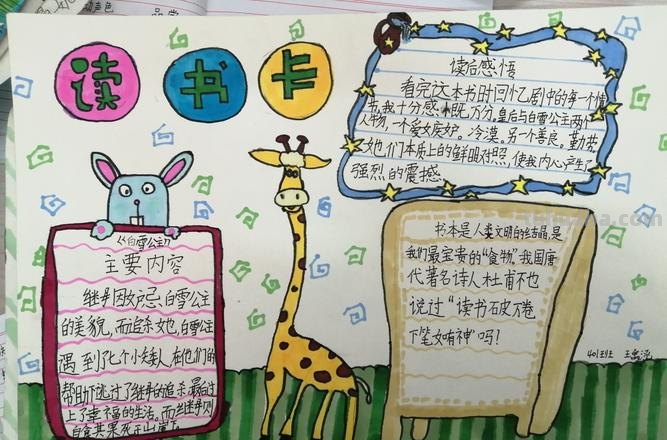 读书卡
读后感悟
看完这本书时回忆剧中的每一个情
节,我十分感慨万分。皇后与白雪公主两个
人物,一个爱女嫉妒。冷漠。另一个善良。勤劳
她们本质上的鲜明对照,使我内心产生了
强烈的震撼
《白雪公主》
主要内容
继母因妒忌白雪公主
的美貌,而追杀她,白雪公主
遇到了七个小矮人在他们的
帮助下逃过了继母的追杀最后过
上了幸福的生活。而继母则
自食其果死于山崖下
书本是人类文明的结晶,是
我们最宝贵的“食物”我国唐
代著名诗人杜甫不也
说过“读书破万卷
下笔如有神”吗!
401班